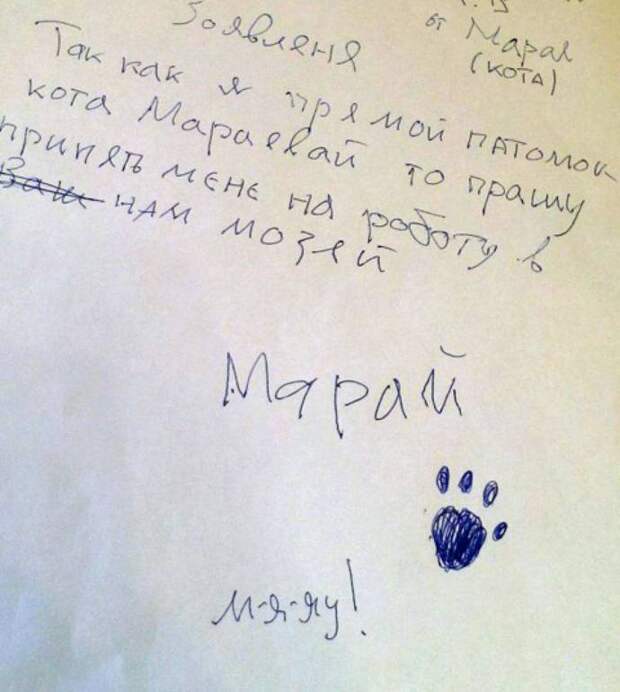 от Марая
(КОТА)
Заявленя
Так как я прямой патомок
кота Мараевай то прашу
принять мене на роботу в
Ваш нам мозей
Марай
м-я-яу!